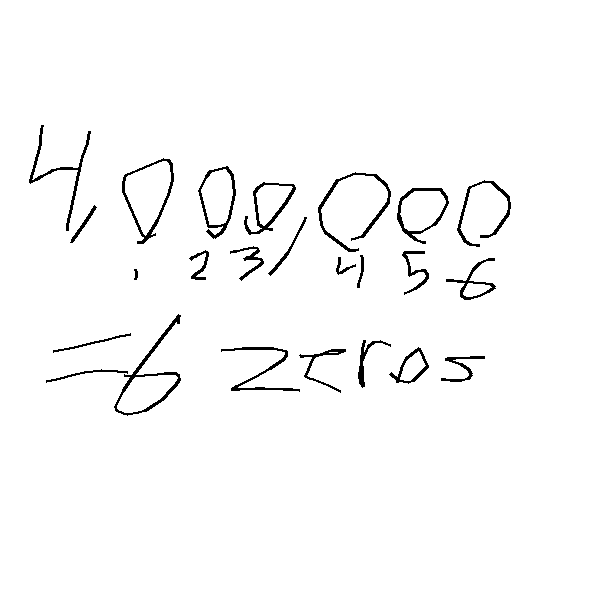 4,000,000
1 2 3 4 5 6
=6 zeros